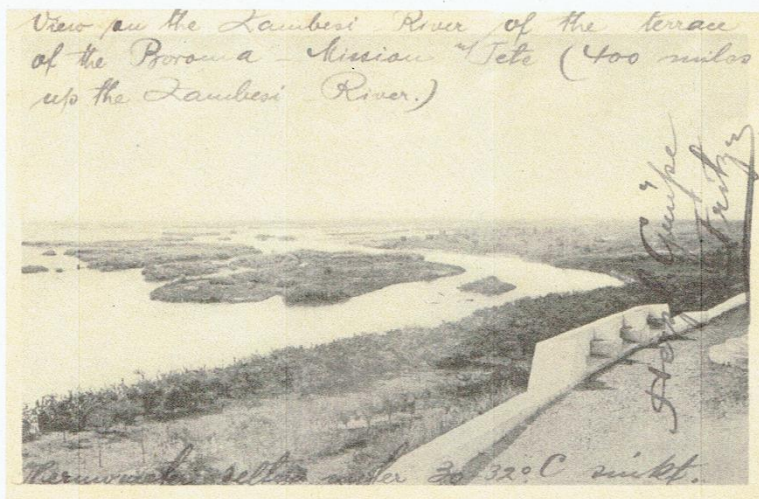 View on the Zambesi River of the terrace
of the Boroma - Mission Tete (400 miles
up the Zambesi River.)
Herzl. Grüße
Fritz
Thermometer selten unter 30-32° C sinkt.